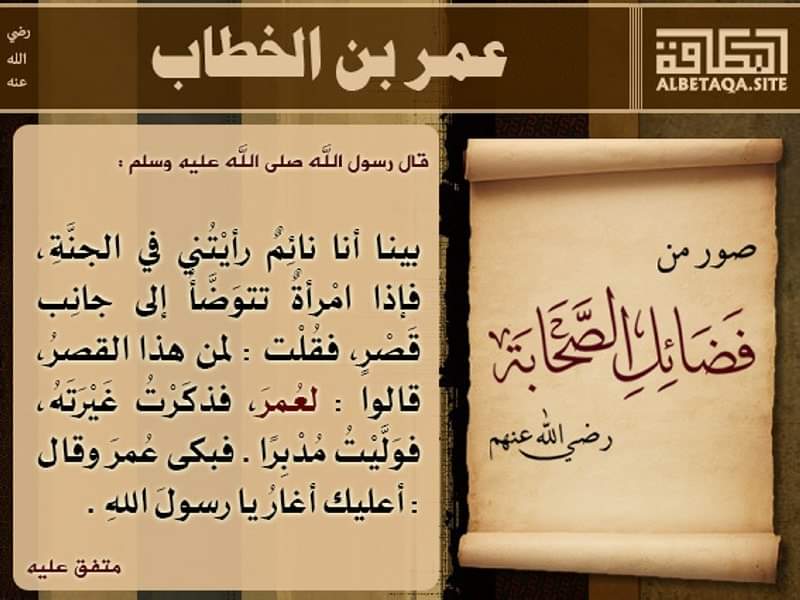 البطاقة
ALBETAQA.SITE
عمر بن الخطاب
رضي
الله
عنه
صور من
فَضَائِلِ الصَّحَابَة
رضي الله عنهم
قال رسول اللَّه صلى اللَّه عليه وسلم :
بينا أنا نائِمٌ رأيْتُني في الجنَّةِ،
فإذا امْرأةٌ تتوَضَّأُ إلى جانِب
قَصْرٍ، فقُلْت : لمن هذا القصرُ،
قالوا : لعُمرَ، فذكَرْتُ غَيْرَتَهُ،
فوَلَّيْتُ مُدْبِرًا . فبكى عُمرَ وقال
: أعليك أغارُ يا رسولَ اللهِ .
متفق عليه